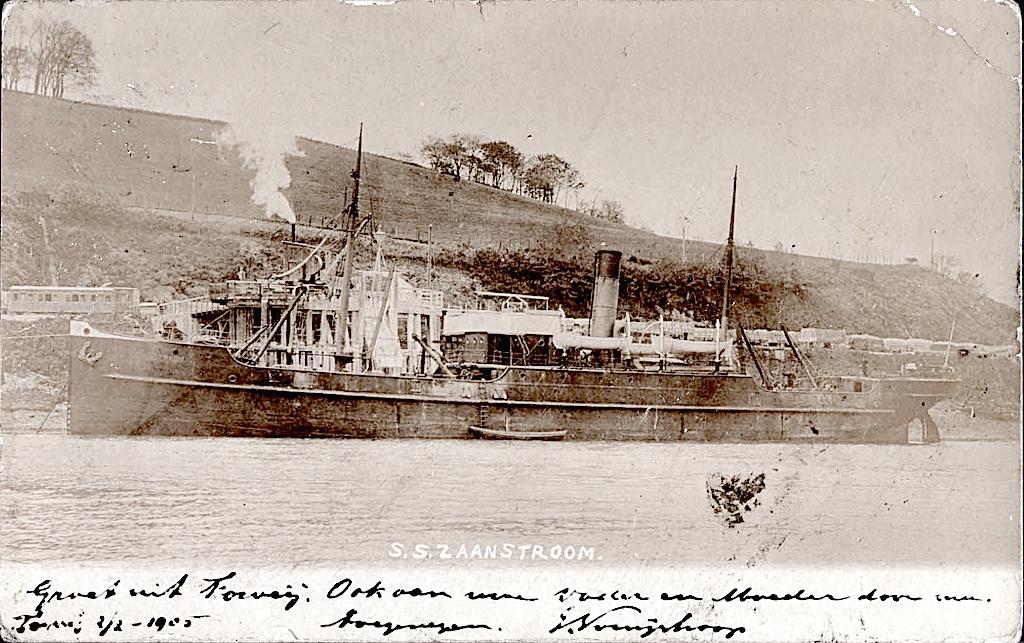 S.S. ZAANSTROOM.
Groet uit Fowey. Ook van uw Vader en Moeder door uw.
Fowey 2/2 - 1905 toegenegen.